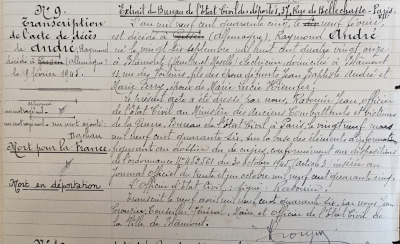 N° 9.
Transcription
de l'acte de décès
de André, Raymond
décédé à (Allemagne)
le 9 février 1945.
un mot ajouté
Dachau
Mort pour la France
Mort en déportation
Extrait du Bureau de l'Etat Civil des déportés, 37, Rue de Bellechasse - Paris
L'an mil neuf cent quarante cinq, le neuf février,
est décédé à (Allemagne), Raymond André
né le vingt six septembre mil huit cent quatre vingt onze
à Blamont (Meurthe et Moselle) domicilié à Blamont
fils des feu Jean Baptiste André et
Marie époux de Marie Lucie
Le présent acte a été dressé par nous, Rabouin Jean, officier
de l'Etat Civil au Ministère des Anciens Combattants et Victimes
de la Guerre, Bureau de l'Etat Civil à Paris, le vingt neuf mars
mil neuf cent quarante six, sur la base des éléments d'information
figurant au dossier du de cujus, conformément aux dispositions
de l'ordonnance N° 45.2561 du 30 octobre 1945 (article 3) insérée au
Journal officiel du trente et un octobre mil neuf cent quarante cinq
L'officier d'Etat Civil : signé : Rabouin.
Transcrit le avril mil neuf cent quarante six, par nous
Conseiller Général, Maire et officier de l'Etat Civil de
la Ville de Blamont.